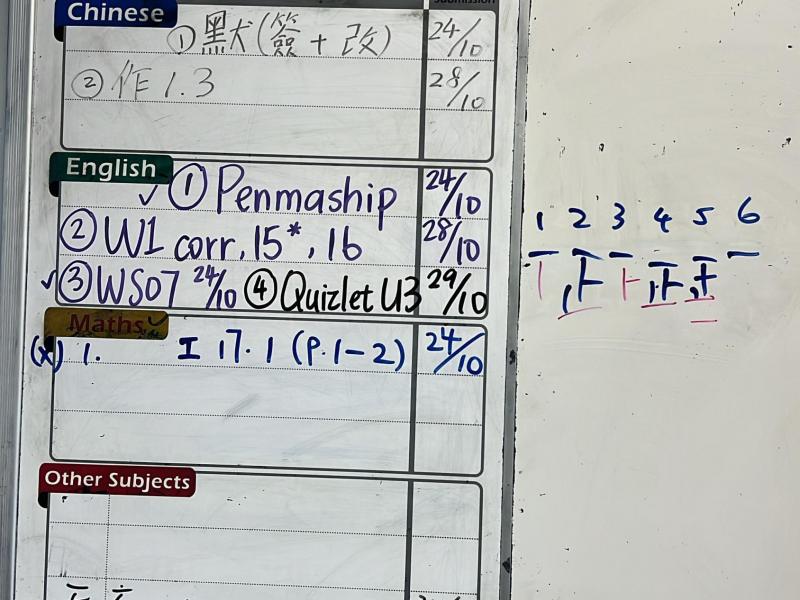 Submission
Chinese
①默犬(簽+改) 24/10
②作1.3 28/10
English
✓ ① Penmaship 24/10
② W1 corr, 15*, 16 28/10
✓③WS07 24/10 ④ Quizlet U3 29/10
Maths ✓
(x) 1. I 17.1 (P.1-2) 24/10
Other Subjects
1 2 3 4 5 6